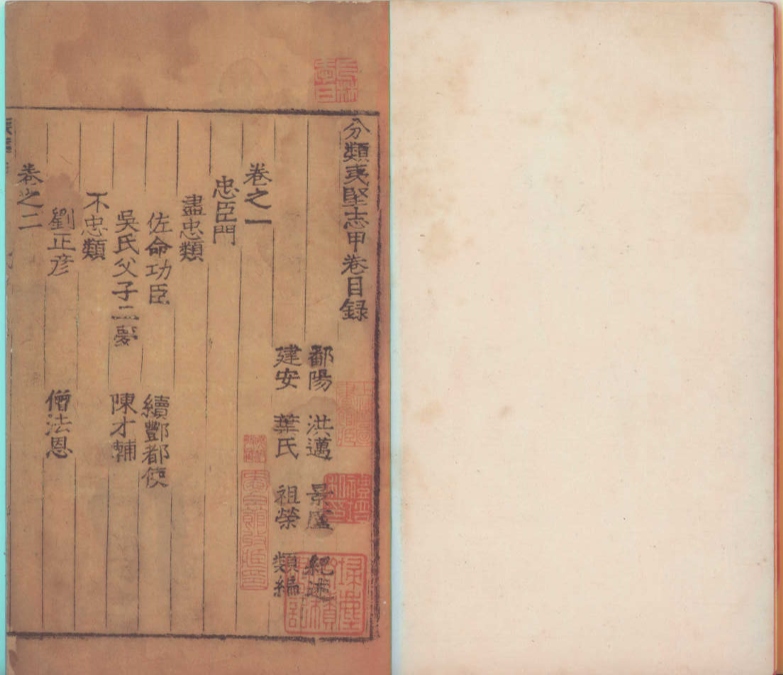 分類夷堅志甲卷目録
鄱陽 洪邁 景廬 紀述
建安 葉氏 祖榮 類編
卷之一
忠臣門
盡忠類
佐命功臣 續酆都使
吳氏父子二夢 陳才輔
不忠類
劉正彥 僧法恩
卷之二